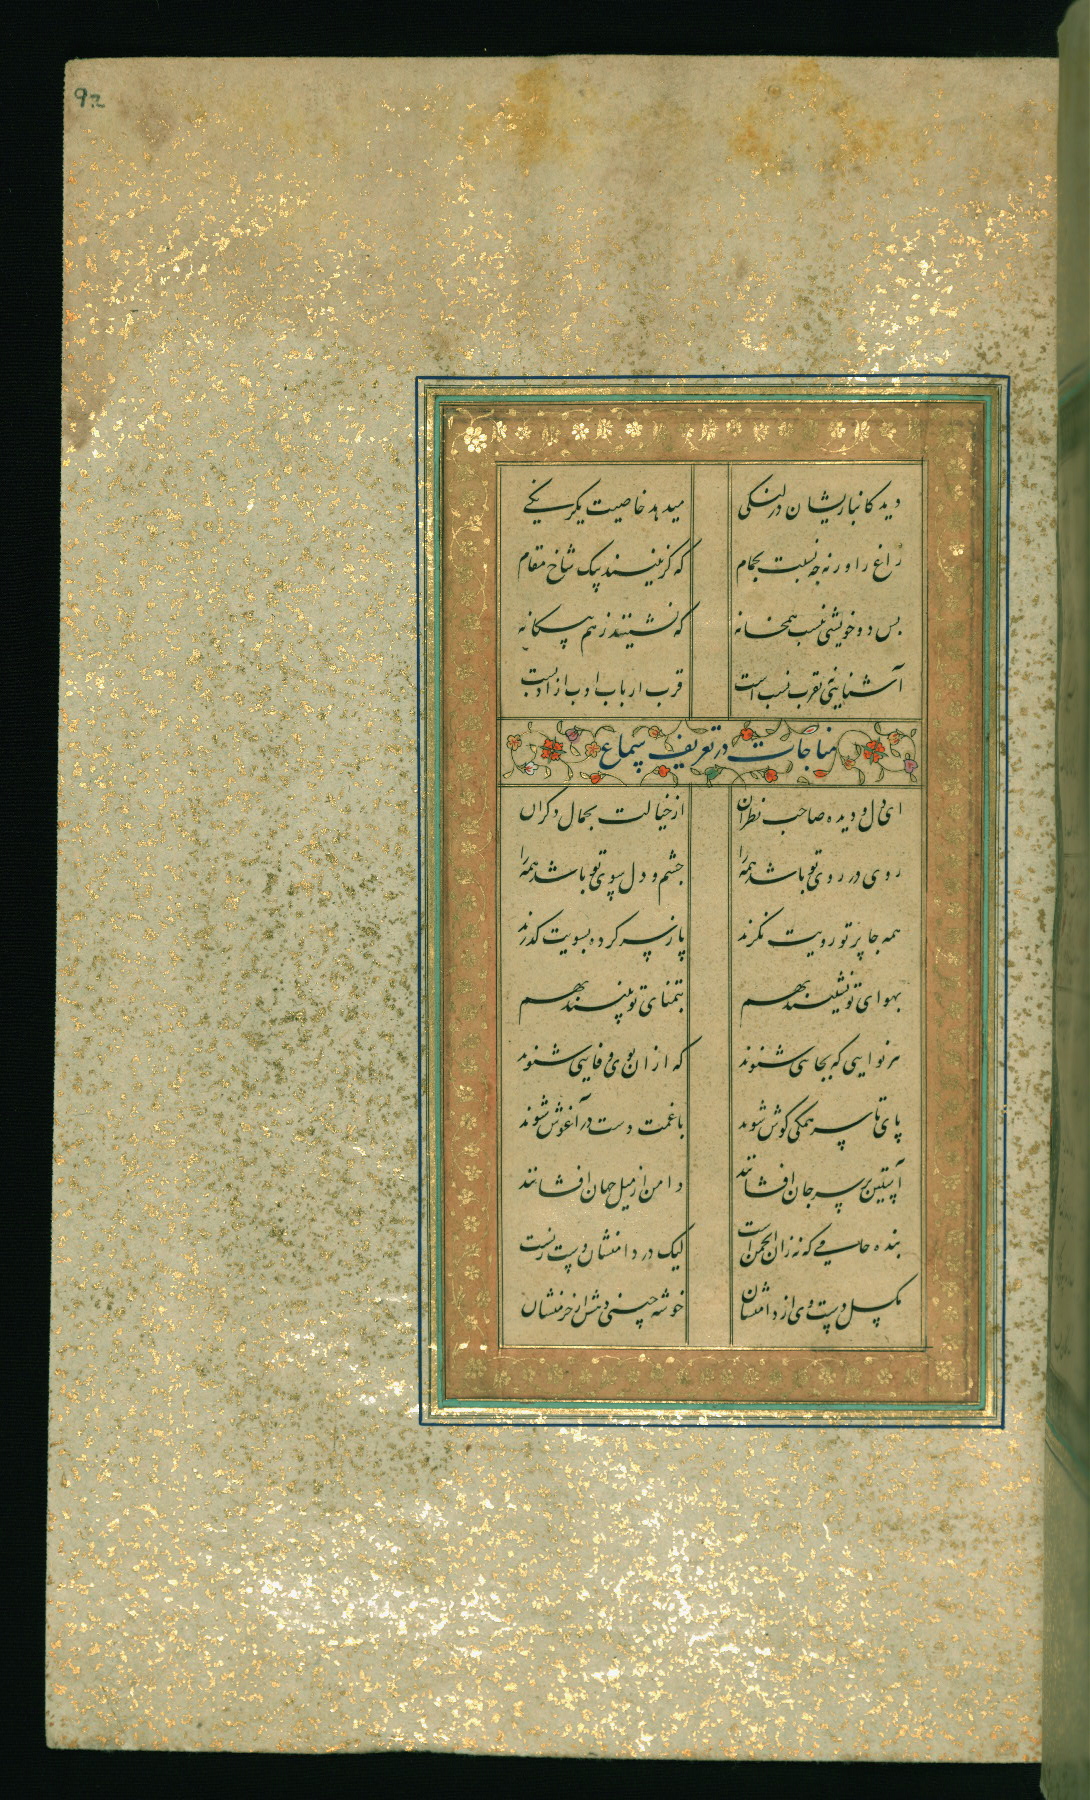 92
دید کانبازیشان در لنکی میدهد خاصیت یکرنکی
زاغ را ورنه چه نسبت بحمام که کزینند بیک شاخ مقام
بس دو خویشی بنسب همخانه که نشینند ز هم بیکانه
آشنایی بقرب نسب است قرب ارباب ادب از ادبست
مناجات در تعریف سماع
ای دل و دیده صاحب نظران از خیالت بجمال دکران
روی در روی تو باشد همه را چشم و دل سوی تو باشد همه را
همه جا پرتو رویت نکرند پا ز سر کرده بسویت کذرند
بهوای تو نشینند بهم بتمنای تو بینند بهم
هر نوایی که بجایی شنوند که ازان بوی وفایی شنوند
پای تا سر همکی کوش شوند با غمت دست در آغوش شوند
آستین بر سر جان افشانند دامن از میل جهان افشانند
بنده جامی که نه زان انجمن است لیک در دامنشان دست زنست
مکسل دست وی از دامنشان خوشه چینی دهش از خرمنشان